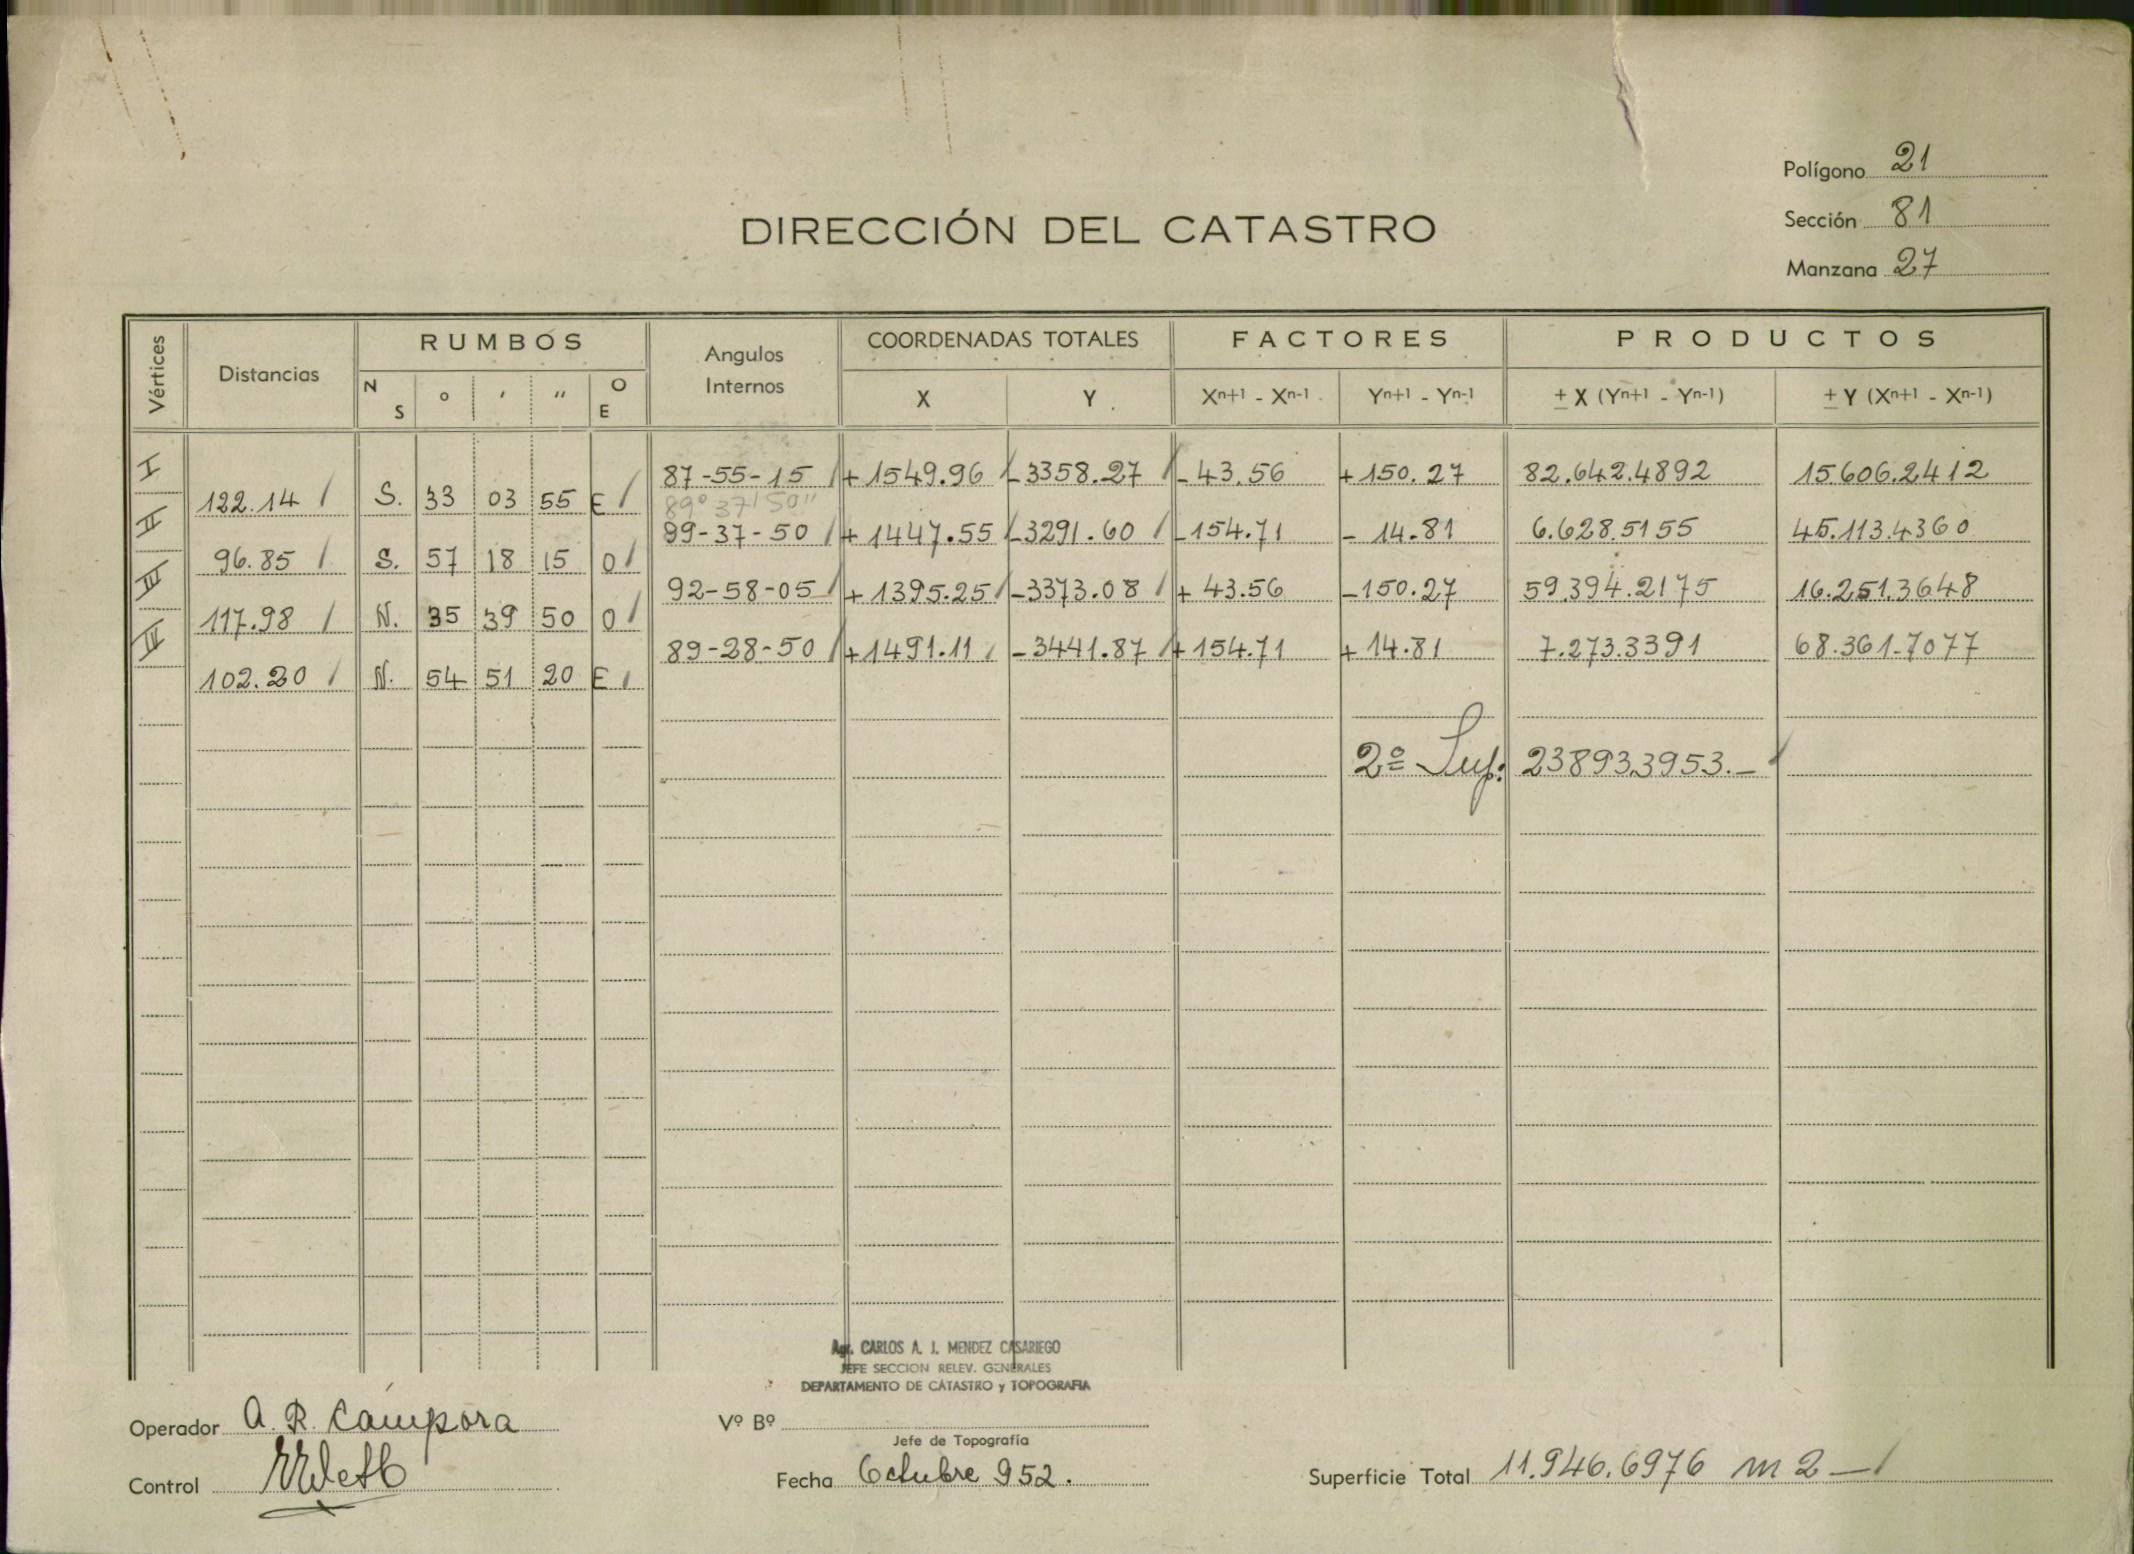 Polígono 21
Sección 81
Manzana 27
DIRECCIÓN DEL CATASTRO
Vértices Distancias RUMBOS Angulos Internos COORDENADAS TOTALES FACTORES PRODUCTOS
N S ° ' " O E X Y Xn+1 - Xn-1 Yn+1 - Yn-1 ± X (Yn+1 - Yn-1) ± Y (Xn+1 - Xn-1)
I 87-55-15 +1549.96 -3358.27 -43.56 +150.27 82.642.4892 15.606.2412
122.14 S. 33 03 55 E 89° 37' 50"
II 89-37-50 +1447.55 -3291.60 -154.71 -14.81 6.628.5155 45.113.4360
96.85 S. 57 18 15 O
III 92-58-05 +1395.25 -3373.08 +43.56 -150.27 59.394.2175 16.251.3648
117.98 N. 35 39 50 O
IV 89-28-50 +1491.11 -3441.87 +154.71 +14.81 7.273.3391 68.361.7077
102.20 N. 54 51 20 E
2º Sup: 23893.3953.-
Agr. CARLOS A. J. MENDEZ CASARIEGO
JEFE SECCION RELEV. GENERALES
DEPARTAMENTO DE CATASTRO y TOPOGRAFIA
Operador A. R. Cámpora
Vº Bº
Jefe de Topografía
Control
Fecha Octubre 952.
Superficie Total 11.946.6976 m2 -